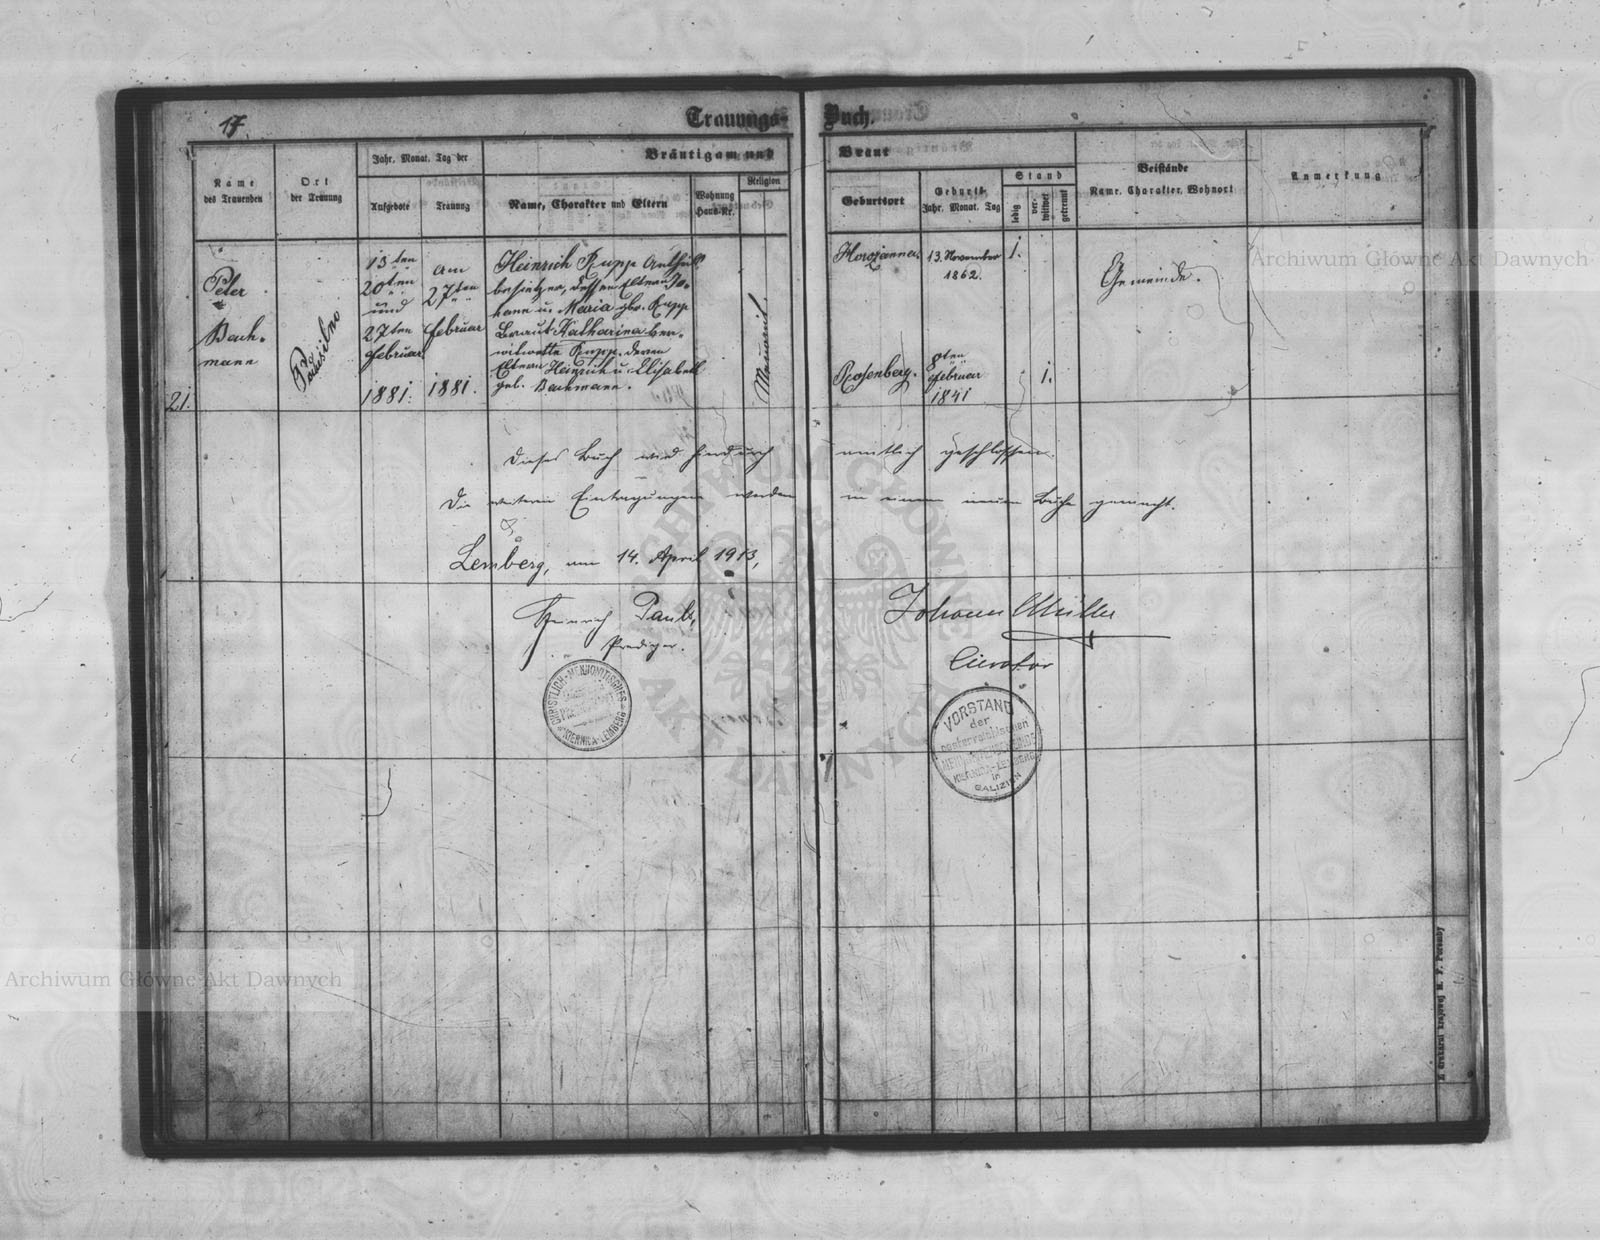 17.
Trauungs-Buch.
Name des Trauenden
Ort der Trauung
Jahr. Monat. Tag der
Aufgebote
Trauung
Bräutigam und Braut
Name, Charakter und Eltern
Wohnung Haus-Nr.
Religion
Geburtsort
Geburts-
Jahr. Monat. Tag
Stand
ledig
verwitwet
getrennt
Beistände
Name. Charakter. Wohnort
Anmerkung
21.
Peter
Bach-
mann
13ten
20ten
und
27ten
Februar
1881.
am
27ten
Februar
1881.
Heinrich Rupp Antheil-
besietzer, dessen Eltern Jo-
hann u. Maria gbr. Rupp
Braut Katharina ver-
witwette Rupp. deren
Eltern Heinrich u. Elisabeth
geb. Bachmann.
Horozanna.
13. November
1862.
1.
Rosenberg.
8ten
Februar
1841
1.
Gemeinde.
Dieses Buch wird hiedurch amtlich geschlossen.
Die weiteren Eintragungen werden in einem neuen Buche gemacht.
Lemberg, am 14. April 1913,
Heinrich Pauls,
Prediger.
Johann Müller
Curator
CHRISTLICH-MENNONITISCHES
KIERNICA-LEMBERG
VORSTAND
der
oesterreichischen
MENNONITENGEMEINDE
KIERNICA-LEMBERG
in
GALIZIEN
Z drukarni krajowej M. F. Poremby
ARCHIWUM GŁÓWNE
AKT DAWNYCH
Archiwum Główne Akt Dawnych
Archiwum Główne Akt Dawnych